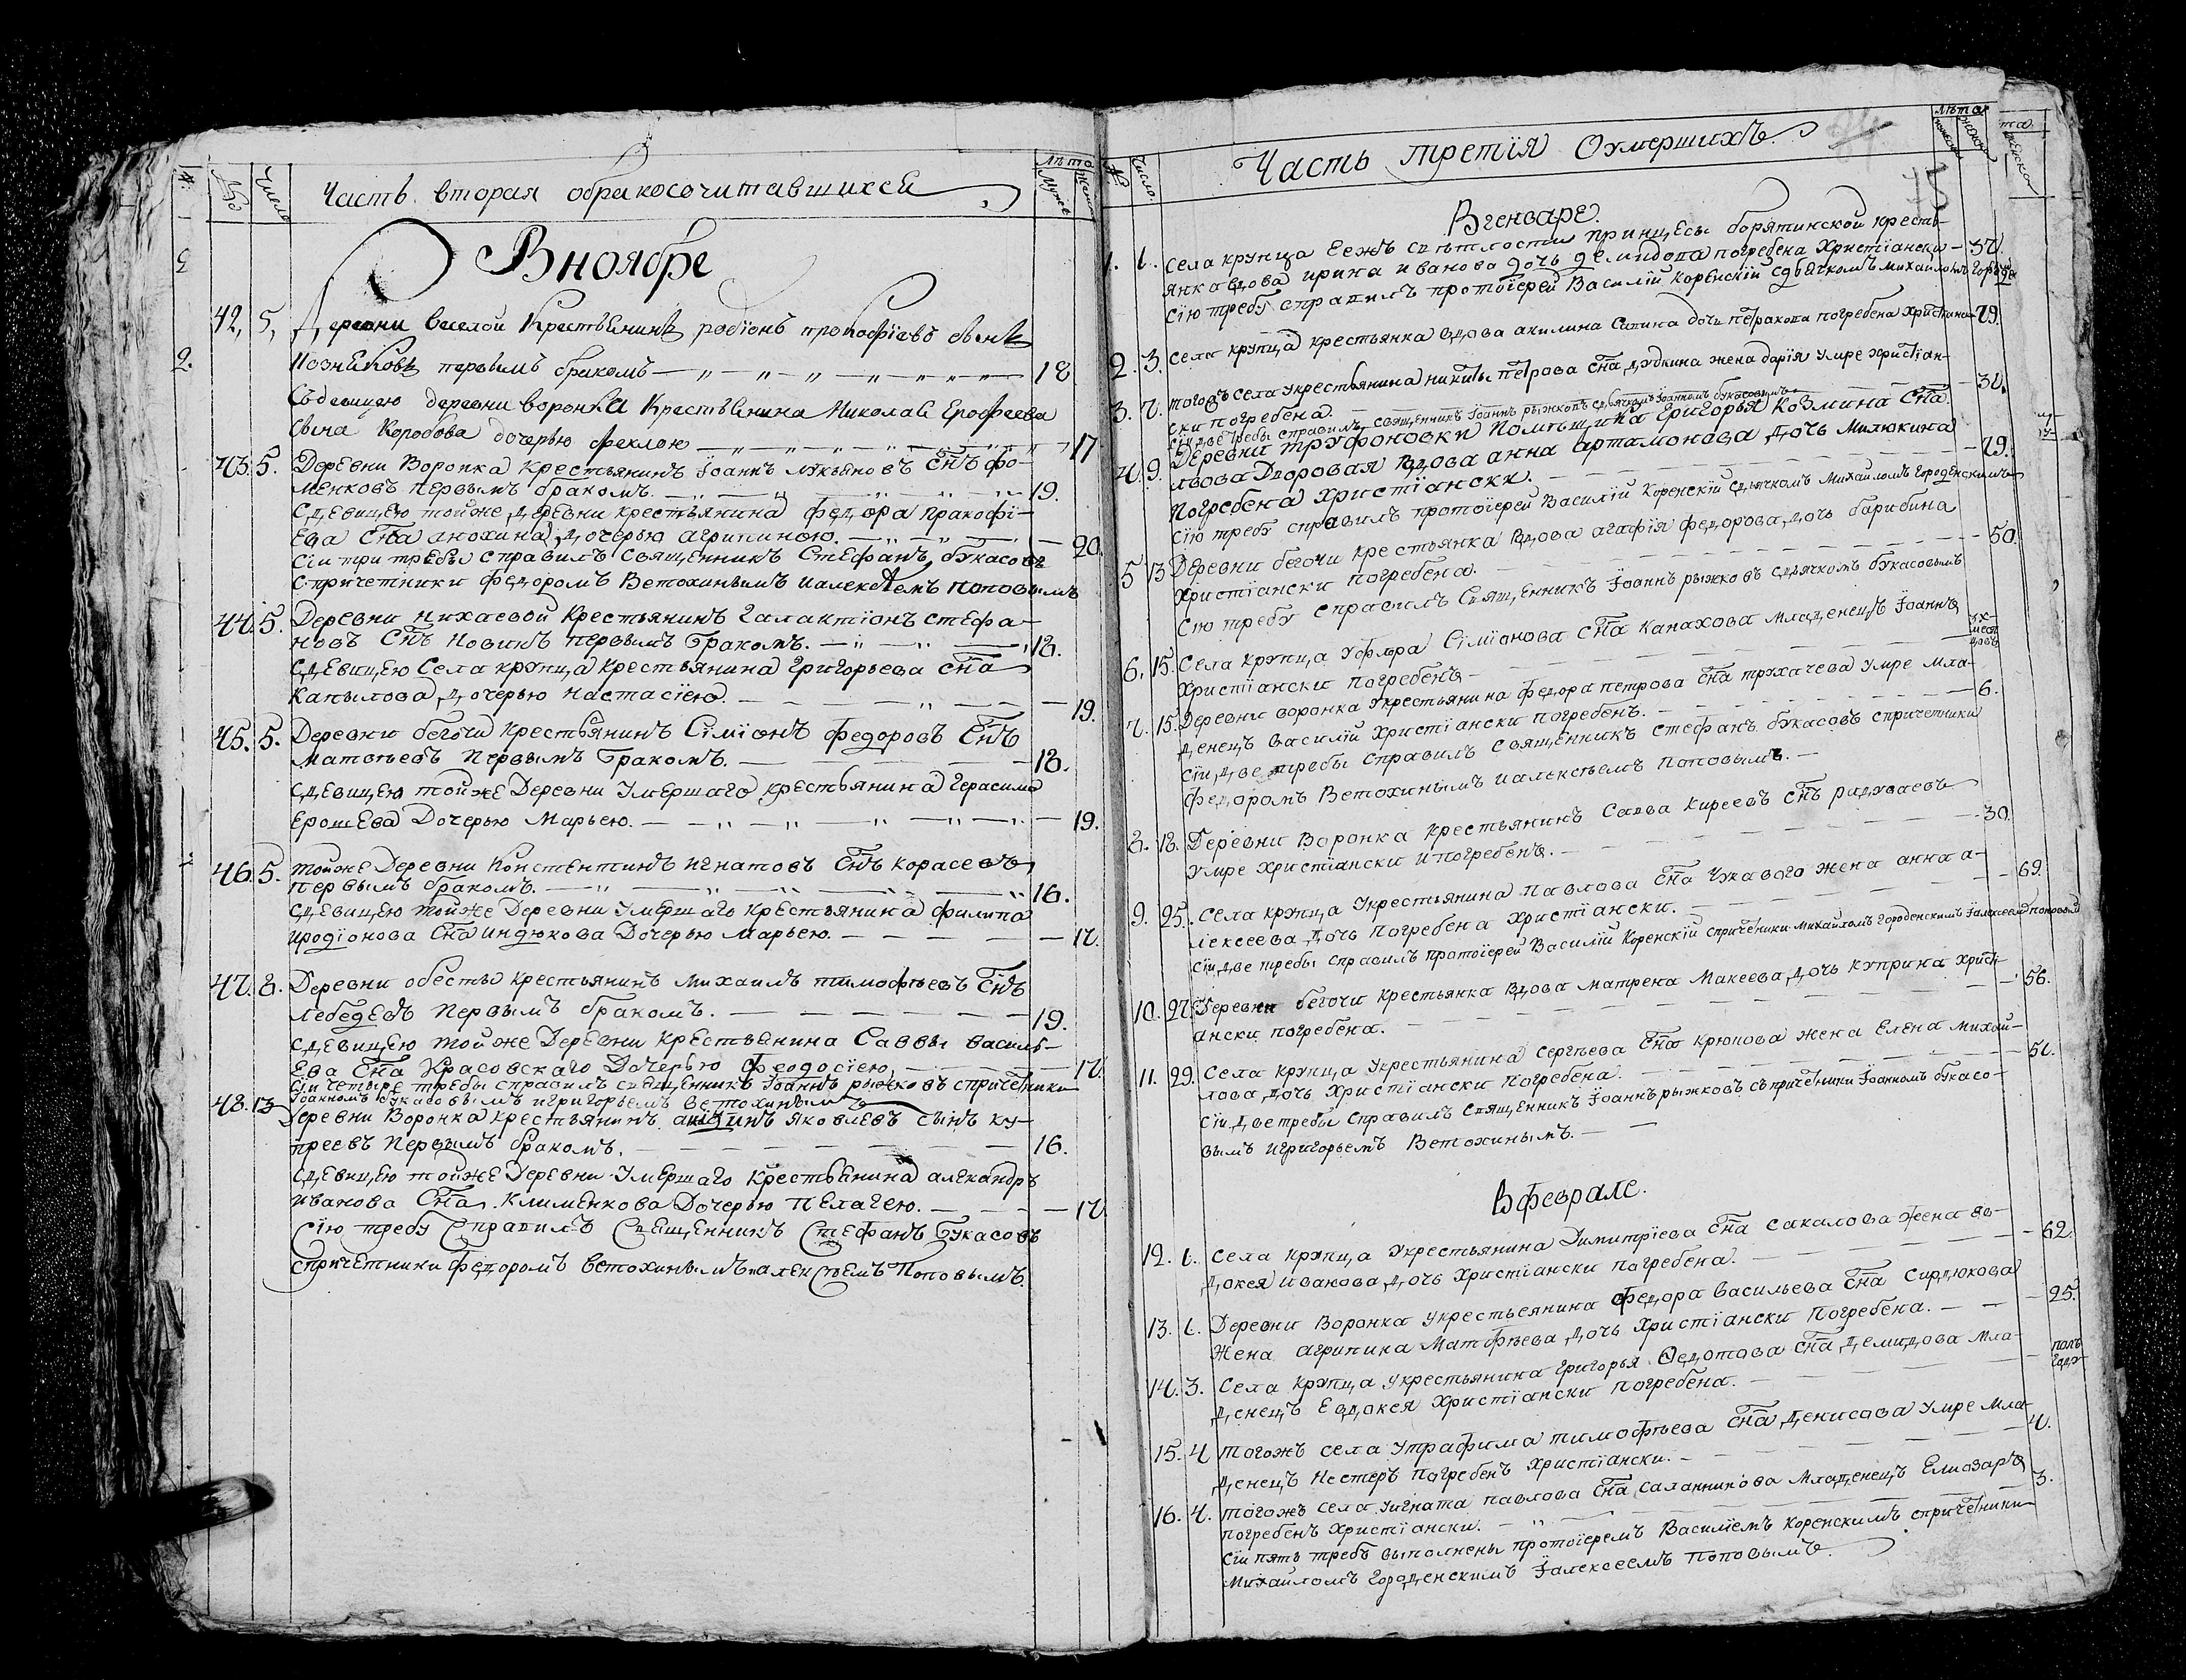 № Число Часть вторая обракосочитавшихся Лѣта Мужеск Женск
В ноябре
42, 5, Деревни веселой Крестьянинъ родіонъ прокофіевъ сынъ
Позняковъ первымъ бракомъ 18
Съ девицею деревни воронка Крестьянина Николая Ерофеева
сына Коробова дочерью феклою 17
43. 5. Деревни Воронка крестьянинъ Іоаннъ лукьяновъ Снъ фо-
менковъ первымъ бракомъ. 19.
сдевицею тойже деревни крестьянина федора пракофі-
ева Сна анохина дочерью агрипиною. 20.
Сіи три требы справилъ священникъ Стефанъ букасовъ
спричетники федоромъ Ветохинымъ иалексѣемъ поповымъ
44. 5. Деревни нихаевой Крестьянинъ галактіонъ стефа-
новъ Снъ новикъ первымъ бракомъ. 18.
сдевицею Села крупца крестьянина григорьева сна
капылова дочерью настасіею. 19.
45. 5. Деревни бегочи крестьянинъ Сіміонъ федоровъ Снъ
матвѣевъ первымъ бракомъ. 18.
сдевицею тойже Деревни умершаго крестьянина герасима
ерошева Дочерью Марьею. 19.
46. 5. тойже Деревни Констентинъ игнатовъ Снъ корасевъ
первымъ бракомъ. 16.
сдевицею тойже Деревни умершаго крестьянина филипа
иродіонова Сна индюкова Дочерью марьею. 17.
47. 8. Деревни обесты крестьянинъ михаилъ тимофѣевъ Снъ
лебедевъ первымъ бракомъ. 19.
сдевицею тойже Деревни крестьянина Саввы василь-
ева Сна Красовскаго Дочерью феодосіею. 17.
Сіи четыре требы справилъ священникъ Іоаннъ рыжковъ спричетники
Іоанномъ букасовымъ игригорьемъ ветохинымъ
48. 13 Деревни Воронка крестьянинъ яковлевъ сынъ ку-
преевъ первымъ бракомъ. 16.
сдевицею тойже Деревни умершаго крестьянина александръ
иванова Сна. Клименкова Дочерью пелагею. 17.
Сію требу Справилъ Священникъ Стефанъ Букасовъ
спричетники федоромъ ветохинымъ иалексѣемъ Поповымъ.
№ Число. Часть третія Оумершихъ. Лѣта
В генваре.
1. 1. села крупца еежъ свѣтлости принцесы борятинской кресть-
янка вдова ирина иванова дочь демидова погребена христіански 37.
Сію требу справилъ протоіерей Василій Коренскій сдьячкомъ михайломъ
2. 3. села крупца крестьянка вдова акилина Савина дочь петракова погребена христиански 79.
3. 7. тогожъ села укрестьянина никиты петрова сна дудкина жена дарія умре христіан-
ски погребена. 31.
сіи две требы справилъ священникъ Іоаннъ рыжковъ сдьячкомъ Іоанномъ букасовымъ
4. 9. Деревни труфоновки помѣщика григорья козмина сна
львова Дворовая вдова анна артамонова дочь милюкина
погребена христіански. 79.
сію требу справилъ протоіерей Василій Коренскій сдьячкомъ михайломъ городенскимъ
5 13 Деревни бегочи крестьянка вдова агафія федорова дочь барибина
христіански погребена. 50.
сію требу справилъ священникъ Іоаннъ рыжковъ сдьячкомъ букасовымъ
6. 15. Села крупца уфлора Сіміонова сна канахова младенецъ Іоаннъ
христіански погребенъ
7. 15. Деревни воронка укрестьянина федора петрова сна трухачева умре мла-
денецъ василій христіански погребенъ. 6.
сіи две требы справилъ священникъ стефанъ букасовъ спричетники
федоромъ ветохинымъ иалексѣемъ поповымъ.
8. 18. Деревни Воронка крестьянинъ Савва киреевъ снъ радуваевъ
умре христіански ипогребенъ. 30.
9. 25. Села крупца укрестьянина павлова сна чукавого жена анна а-
лексеева дочь погребена христіански. 69.
сіи две требы справилъ протоіерей Василій Коренскій спричетники михайломъ городенскимъ Іалексеемъ поповымъ
10. 27. Деревни бегочи крестьянка вдова матрена макеева дочь куприна христі-
ански погребена. 56.
11. 29. Села крупца укрестьянина сергѣева сна крюкова жена елена михай-
лова дочь христіански погребена. 51.
сіи две требы справилъ священникъ Іоаннъ рыжковъ съпричетники Іоанномъ букасо-
вымъ игригорьемъ Ветохинымъ.
В феврале.
12. 1. села крупца укрестьянина димитріева сна сакалова жена ев-
докея иванова дочь христіански погребена. 62.
13. 1. Деревни Воронка укрестьеянина федора васильева сна сирдюкова
жена агрипина матфѣева дочь христіански погребена. 25.
14. 3. Села крупца укрестьянина григорья Ѳедотова сна демидова мла-
денецъ евдокея христіански погребена. полъ году
15. 4 тогожъ села утрафима тимофѣева сна денисова умре мла-
денецъ нестеръ погребенъ христіански. 4.
16. 4. тогожъ села уигната павлова сна саланникова младенецъ елиозаръ
погребенъ христіански. 3.
сіи пять требъ выполнены протоіеремъ Василіемъ Коренскимъ спричетники
михайломъ городенскимъ Іалексеемъ поповымъ.